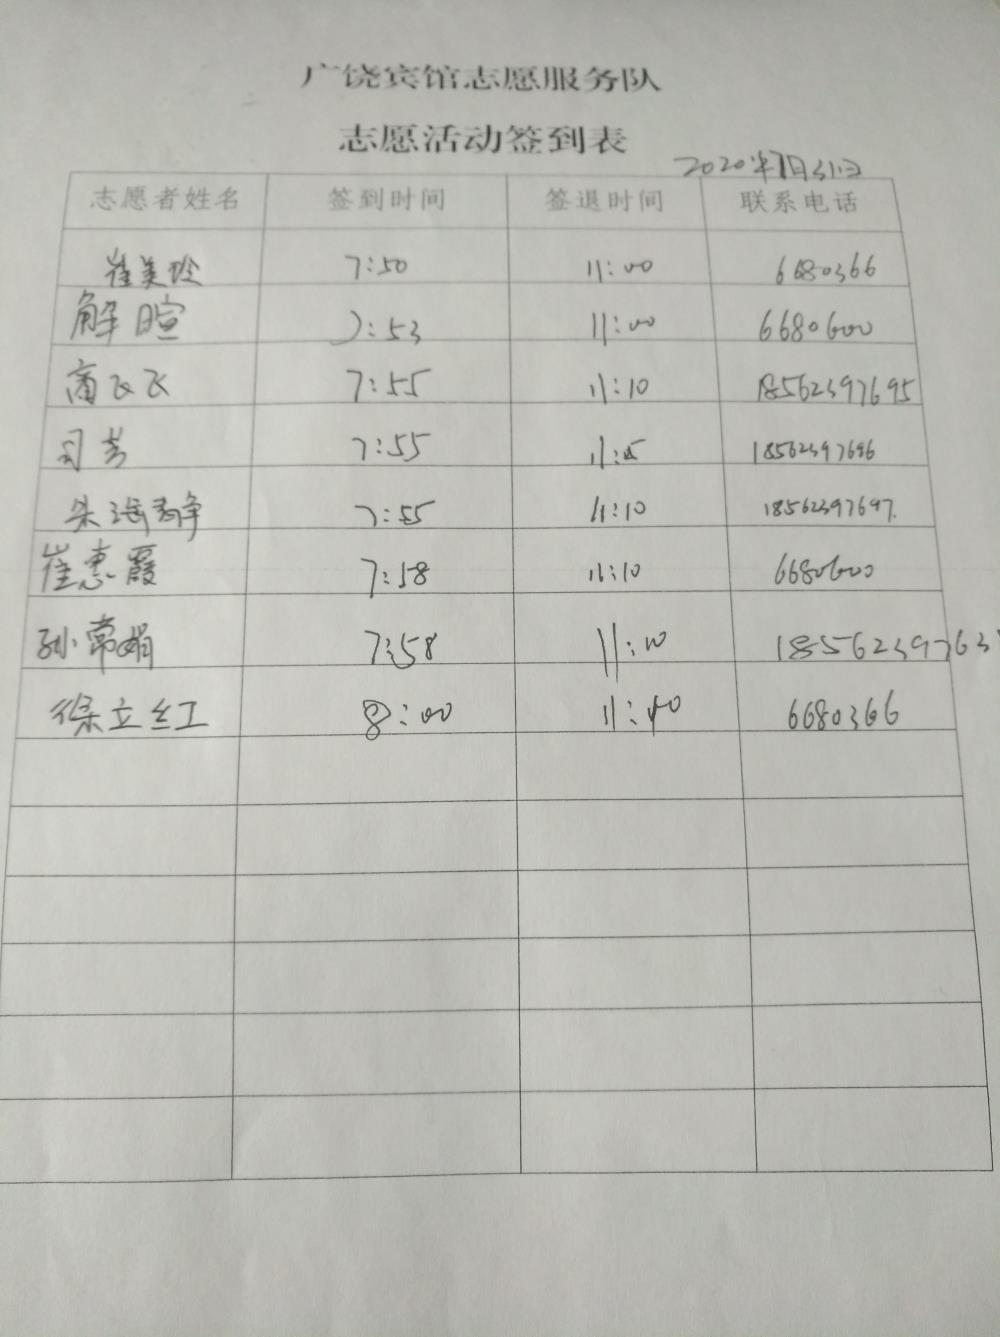 广饶宾馆志愿服务队
志愿活动签到表
2020年7月31日
志愿者姓名 签到时间 签退时间 联系电话
崔美玲 7:50 11:00 6680366
解暄 7:53 11:00 6680600
商飞飞 7:55 11:10 18562397695
司芳 7:55 18562397696
朱 静 7:55 11:10 18562397697.
崔惠霞 7:58 11:10 6680600
孙常娟 7:58 11:10
徐立红 8:00 11:10 6680366